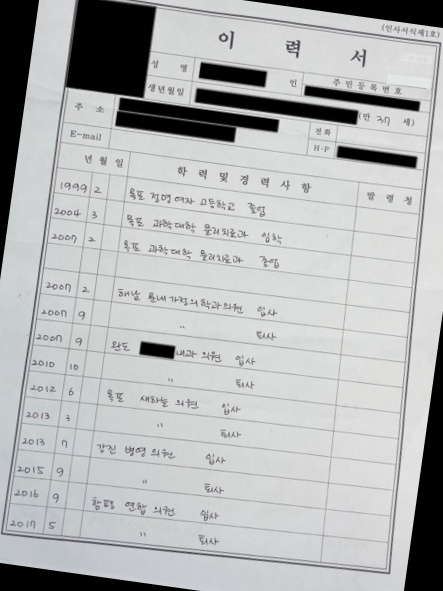 (인사서식제1호)
이 력 서
성 명 인 주 민 등 록 번 호
생년월일 (만 37 세)
주 소 전화
E-mail H·P
년 월 일 학 력 및 경 력 사 항 발 령 청
1999 2 목포 정명 여자 고등학교 졸업
2004 3 목포 과학대학 물리치료과 입학
2007 2 목포 과학대학 물리치료과 졸업
2007 2 해남 가정의학과의원 입사
2007 9 " 퇴사
2007 9 완도 내과 의원 입사
2010 10 " 퇴사
2012 6 목포 새하늘 의원 입사
2013 3 " 퇴사
2013 7 강진 병영 의원 입사
2015 9 " 퇴사
2016 9 함평 연합 의원 입사
2017 5 " 퇴사